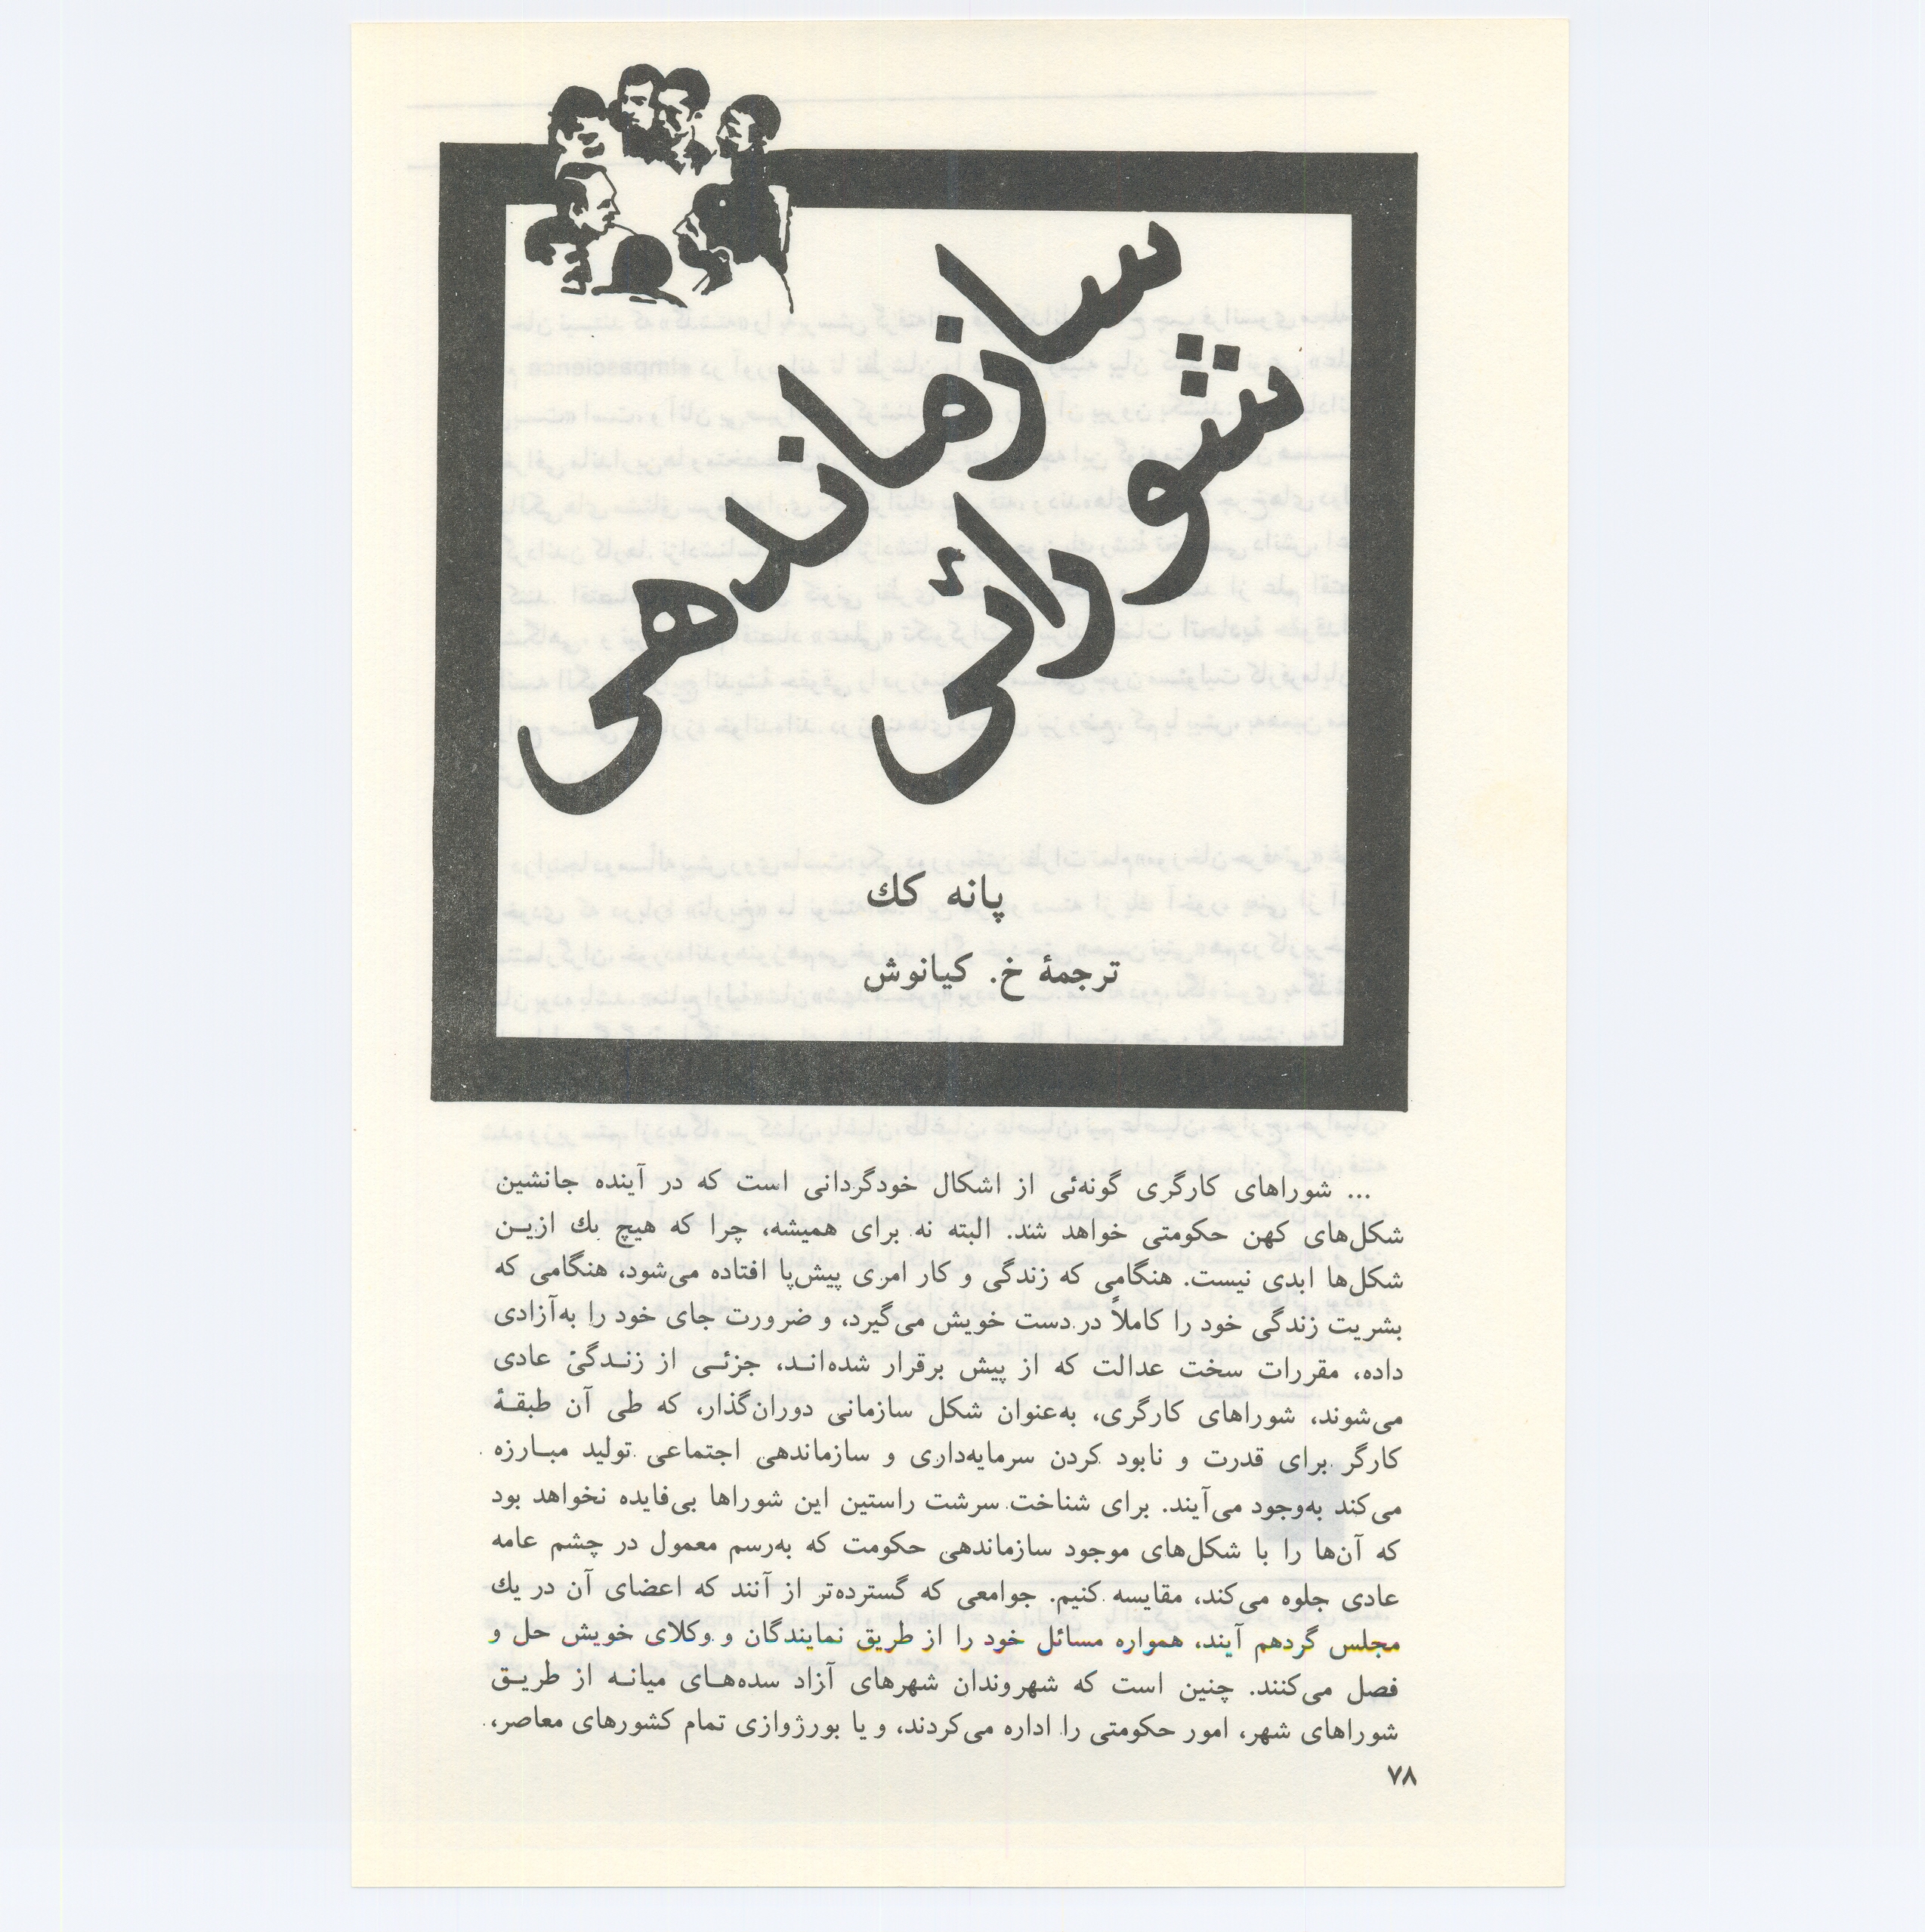 سازماندهی
شورائی
پانه کك
ترجمهٔ خ. کیانوش
... شوراهای کارگری گونه‌ئی از اشکال خودگردانی است که در آینده جانشین
شکل‌های کهن حکومتی خواهد شند. البته نه برای همیشه، چرا که هیچ یك ازیـن
شکل‌ها ابدی نیست. هنگامی که زندگی و کار امری پیش‌پا افتاده می‌شود، هنگامی که
بشریت زندگی خود را کاملاً در دست خویش می‌گیرد، و ضرورت جای خود را به‌آزادی
داده، مقررات سخت عدالت که از پیش برقرار شده‌انـد، جزئـی از زنـدگیٔ عادی
می‌شوند، شوراهای کارگری، به‌عنوان شکل سازمانی دوران‌گذار، که طی آن طبقـهٔ
کارگر برای قدرت و نابود کردن سرمایه‌داری و سازماندهی اجتماعی تولید مبـارزه
می‌کند به‌وجود می‌آیند. برای شناخت سرشت راستین این شوراها بی‌فایده نخواهد بود
که آن‌ها را با شکل‌های موجود سازماندهی حکومت که به‌رسم معمول در چشم عامه
عادی جلوه می‌کند، مقایسه کنیم. جوامعی که گسترده‌تر از آنند که اعضای آن در یك
مجلس گردهم آیند، همواره مسائل خود را از طریق نمایندگان و وکلای خویش حل و
فصل می‌کنند. چنین است که شهروندان شهرهای آزاد سده‌هـای میانـه از طریـق
شوراهای شهر، امور حکومتی را اداره می‌کردند، و یا بورژوازی تمام کشورهای معاصر،
۷۸